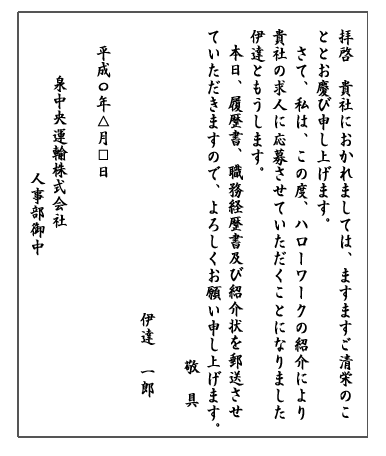 拝啓　貴社におかれましては、ますますご清栄のこ
ととお慶び申し上げます。
　さて、私は、この度、ハローワークの紹介により
貴社の求人に応募させていただくことになりました
伊達ともうします。
　本日、履歴書、職務経歴書及び紹介状を郵送させ
ていただきますので、よろしくお願い申し上げます。
敬　具
伊達　一郎
平成〇年△月□日
泉中央運輸株式会社
人事部御中